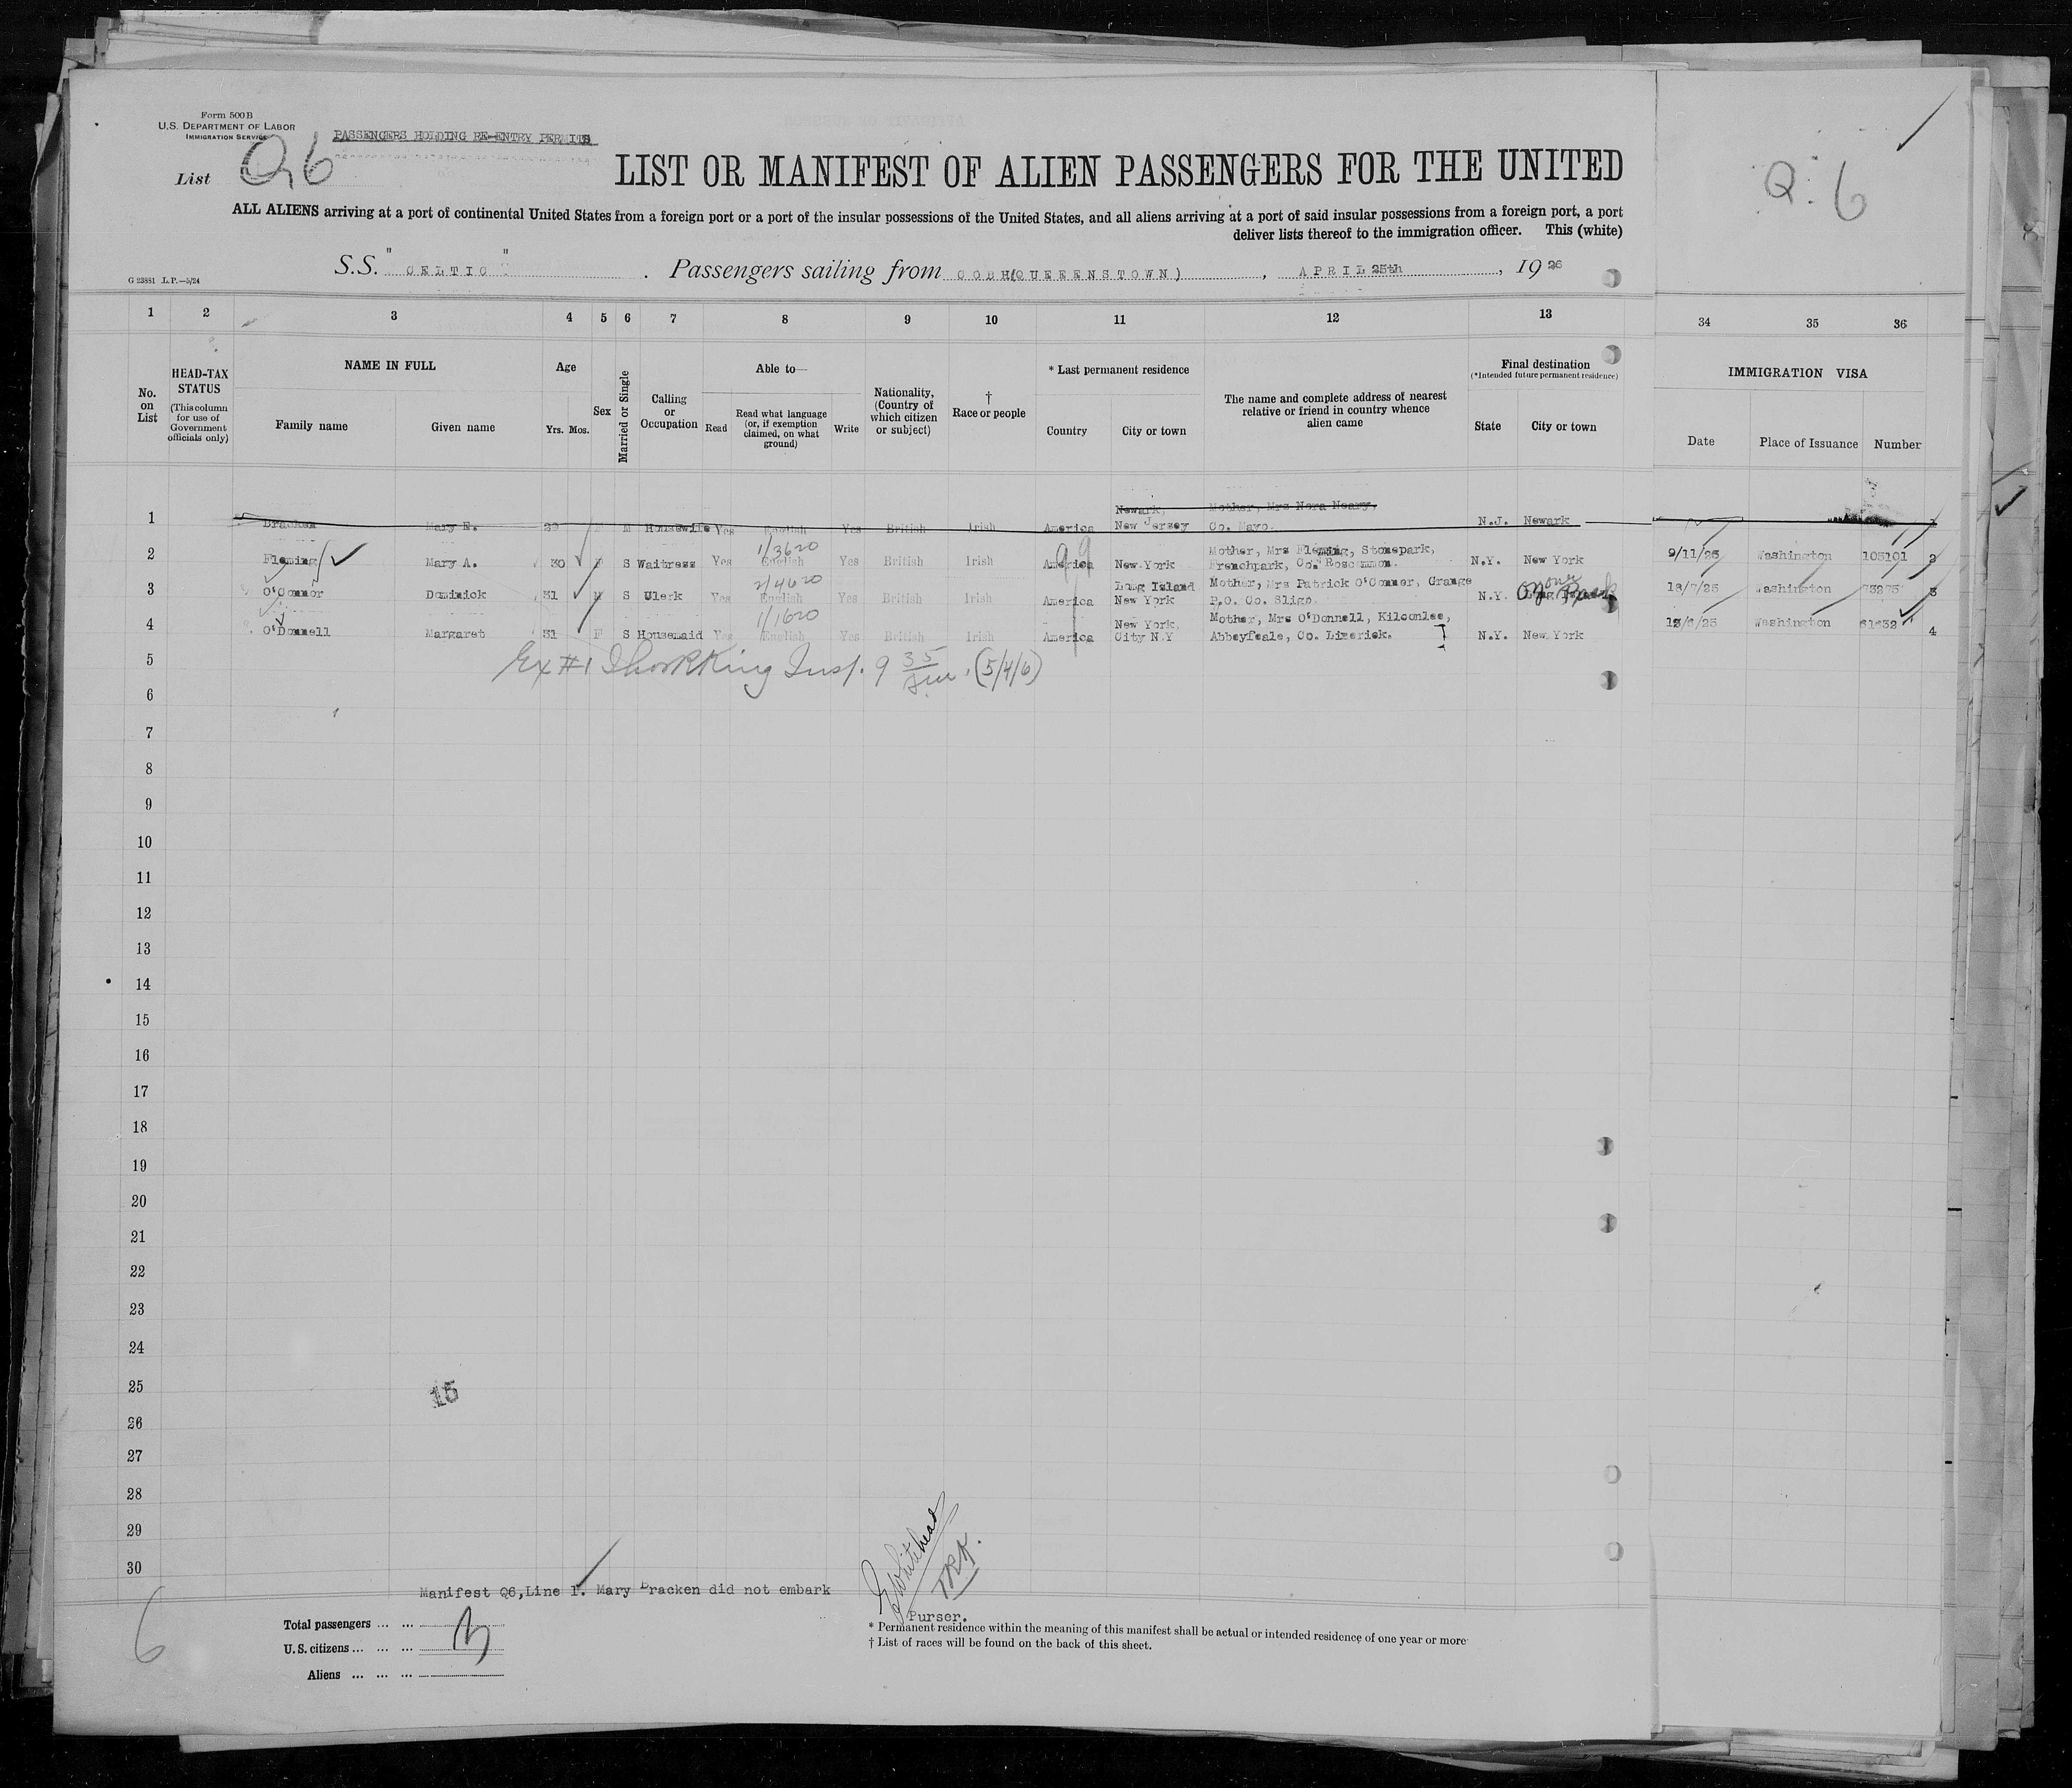 Form 500 B
U.S. DEPARTMENT OF LABOR
IMMIGRATION SERVICE
PASSENGERS HOLDING RE-ENTRY PERMITS
List Q6
LIST OR MANIFEST OF ALIEN PASSENGERS FOR THE UNITED
Q. 6
ALL ALIENS arriving at a port of continental United States from a foreign port or a port of the insular possessions of the United States, and all aliens arriving at a port of said insular possessions from a foreign port, a port
deliver lists thereof to the immigration officer. This (white)
G 23881 L.P.—5/24
S.S. "CELTIC" . Passengers sailing from COBH(QUEEENSTOWN) , APRIL 25th , 19 26
1 2 3 4 5 6 7 8 9 10 11 12 13 34 35 36
No. on List
HEAD-TAX STATUS (This column for use of Government officials only)
NAME IN FULL
Family name Given name
Age
Yrs. Mos.
Sex
Married or Single
Calling or Occupation
Able to—
Read
Read what language (or, if exemption claimed, on what ground)
Write
Nationality, (Country of which citizen or subject)
† Race or people
* Last permanent residence
Country City or town
The name and complete address of nearest relative or friend in country whence alien came
Final destination
(*Intended future permanent residence)
State City or town
IMMIGRATION VISA
Date Place of Issuance Number
1 Bracken Mary E. 29 M Housewife Yes English Yes British Irish America Newark, New Jersey Mother, Mrs Nora Neary, Co. Mayo. N.J. Newark 1
1/3620
2 Fleming Mary A. 30 F S Waitress Yes English Yes British Irish America New York Mother, Mrs Fleming, Stonepark, Frenchpark, Co. Roscommon. N.Y. New York 9/11/25 Washington 105101 2
2/4620
3 O'Connor Dominick 31 M S Clerk Yes English Yes British Irish America Long Island New York Mother, Mrs Patrick O'Connor, Grange P.O. Co. Sligo. N.Y. Ozone Park 18/7/25 Washington 3
1/1620
4 O'Donnell Margaret 31 F S Housemaid Yes English Yes British Irish America New York, City N.Y Mother, Mrs O'Donnell, Kilconlee, Abbeyfeale, Co. Limerick. N.Y. New York Washington 4
Ex #1 Insp. 9 35 (5/4/6)
5
6
7
8
9
10
11
12
13
14
15
16
17
18
19
20
21
22
23
24
25
15
26
27
28
29
30
Manifest Q6,Line 1. Mary Bracken did not embark
E Whitehead
Purser.
6
Total passengers ... ...
U.S. citizens ... ... ... 3
Aliens ... ... ...
* Permanent residence within the meaning of this manifest shall be actual or intended residence of one year or more
† List of races will be found on the back of this sheet.